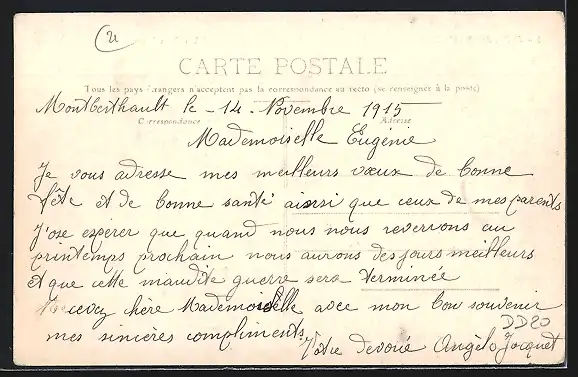 CARTE POSTALE
Tous les pays étrangers n'acceptent pas la correspondance au recto (se renseigner à la poste)
Montberthault le - 14 - Novembre 1915
Correspondance Adresse
Mademoiselle Eugénie
Je vous adresse mes meilleurs vœux de bonne
fête et de bonne santé ainsi que ceux de mes parents
J'ose espérer que quand nous nous reverrons au
printemps prochain nous aurons des jours meilleurs
et que cette maudite guerre sera terminée
Recevez chère Mademoiselle avec mon bon souvenir
mes sincères compliments.
DD80
Votre dévoué Angelo Jacquet